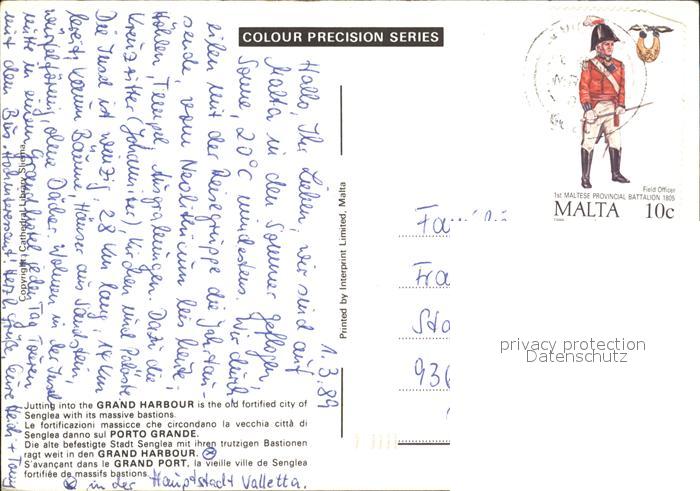 COLOUR PRECISION SERIES
1.3.89
Hallo, Ihr Lieben, wir sind auf
Malta in den Sommer geflogen,
Sonne, 20°C mindestens. Wir durch
eilen mit der Reisegruppe die Jahrtau-
sende vom Neolithikum bis heute;
Höhlen, Tempel, Ausgrabungen. Dazu die
Kreuzritter (Johanniter), Kirchen und Paläste.
Die Insel ist winzig, 28 km lang, 14 km
breit, kaum Bäume, Häuser aus Sandstein,
würfelförmig, ohne Dächer. Wohnen in der Insel
mitte in einem Grand hotel, jeden Tag Touren
mit dem Bus. Hochinteressant! Herzl. Grüße, Eure Heidi + Tony
Copyright Cathedral Library Sliema
Jutting into the GRAND HARBOUR is the old fortified city of
Senglea with its massive bastions.
Le fortificazioni massicce che circondano la vecchia città di
Senglea danno sul PORTO GRANDE.
Die alte befestigte Stadt Senglea mit ihren trutzigen Bastionen
ragt weit in den GRAND HARBOUR. ⊗
S'avançant dans le GRAND PORT, la vieille ville de Senglea
fortifiée de massifs bastions.
⊗ in der Hauptstadt Valletta.
Printed by Interprint Limited, Malta
Field Officer
1st MALTESE PROVINCIAL BATTALION 1805
MALTA 10c
Fa
Fra
Sta
936
privacy protection
Datenschutz